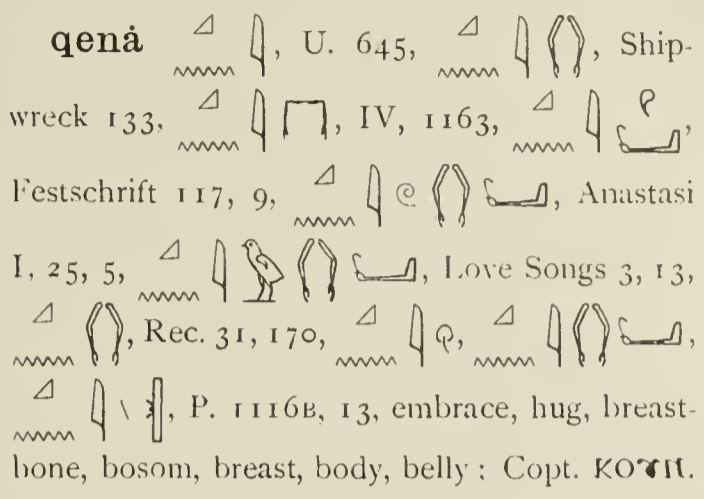 qenȧ 𓈎𓈖𓇋, U. 645, 𓈎𓈖𓇋𓂘, Ship-
wreck 133, 𓈎𓈖𓇋, IV, 1163, 𓈎𓈖𓇋𓍢𓂡,
Festschrift 117, 9, 𓈎𓈖𓇋𓏲𓂘𓂡, Anastasi
I, 25, 5, 𓈎𓈖𓇋𓅱𓂘𓂡, Love Songs 3, 13,
𓈎𓈖𓂘, Rec. 31, 170, 𓈎𓈖𓇋𓍢, 𓈎𓈖𓇋𓂘𓂡,
𓈎𓈖𓇋 \, P. 1116B, 13, embrace, hug, breast-
bone, bosom, breast, body, belly ; Copt. ⲕⲟⲩⲛ.